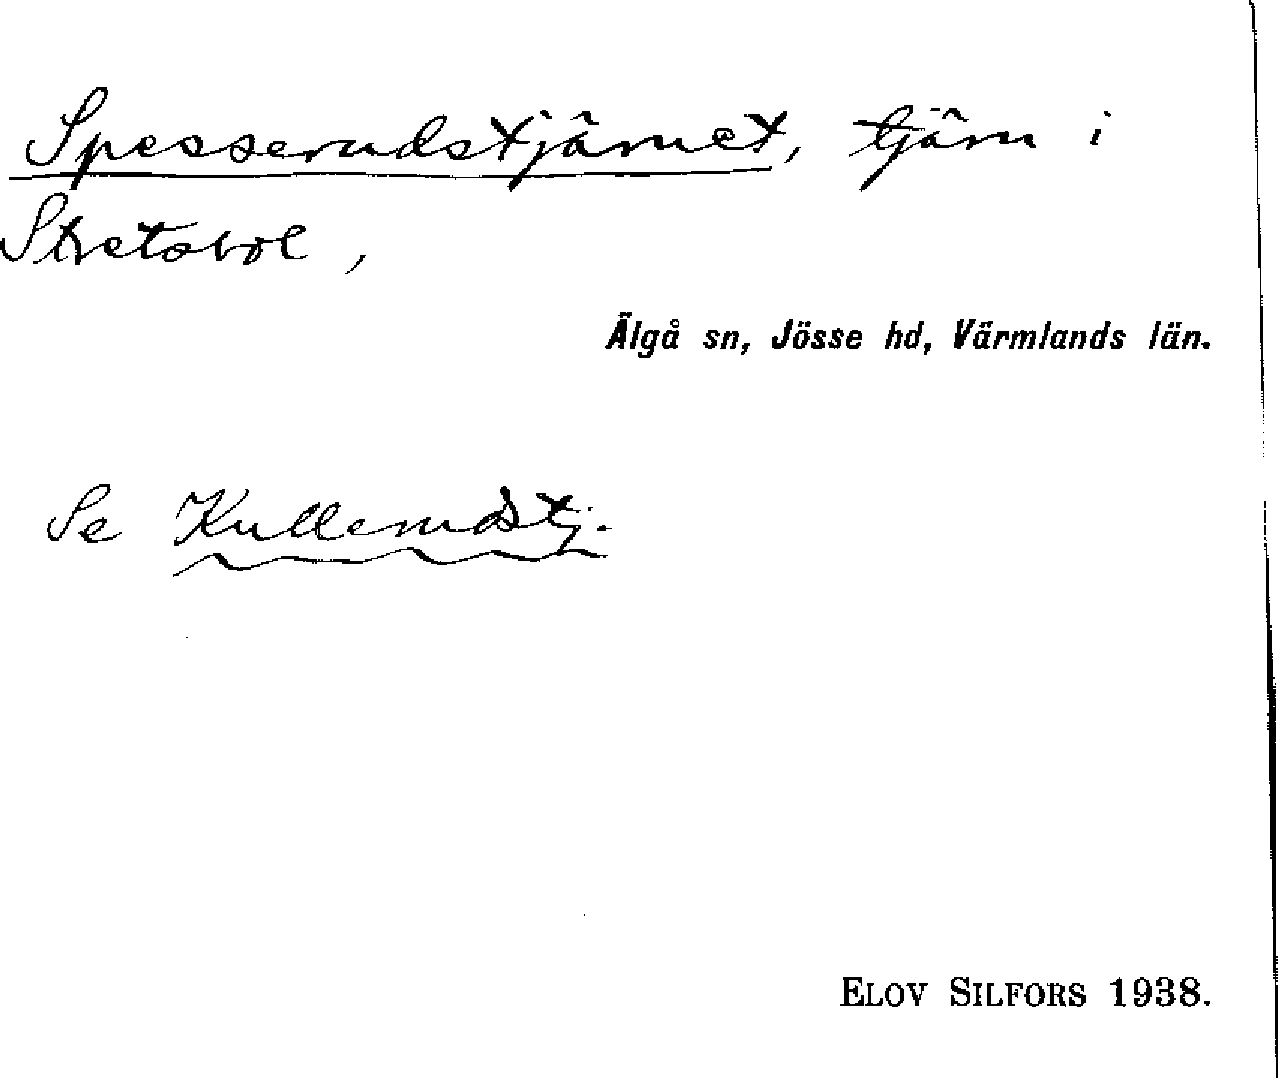 Spesserudstjärnet, tjärn i
Stretsbol,
Älgå sn, Jösse hd, Värmlands län.
Se Kullerudstj.
ELOV SILFORS 1938.